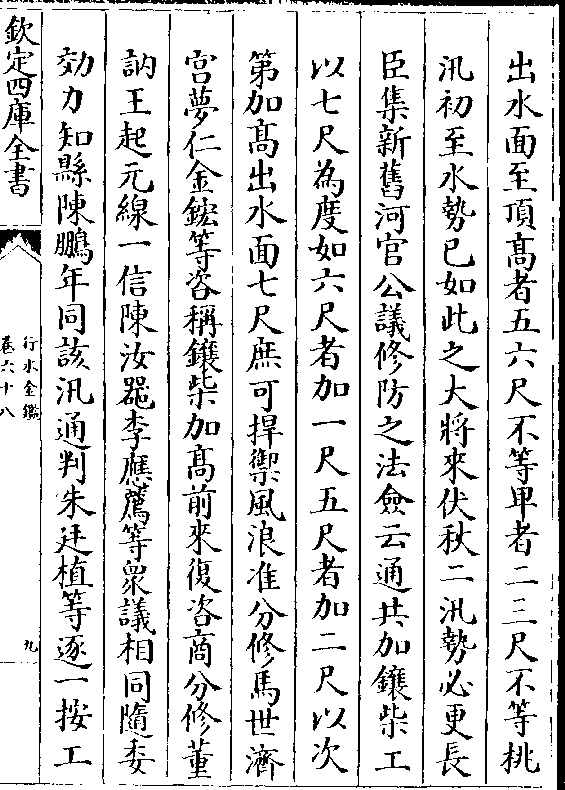 出水面至頂髙者五六尺不等卑者二三尺不等桃
汛初至水勢已如此之大將來伏秋二汛勢必更長
臣集新舊河官公議修防之法僉云通共加鑲柴工
以七尺為度如六尺者加一尺五尺者加二尺以次
第加髙出水面七尺庶可捍禦風浪准分修馬世濟
宫夢仁金鋐等咨稱鑲柴加髙前來復咨商分修董
訥王起元線一信陳汝噐李應薦等衆議相同隨委
効力知縣陳鵬年同該汛通判朱廷植等逐一按工
欽定四庫全書
行水金鑑
卷六十八
九